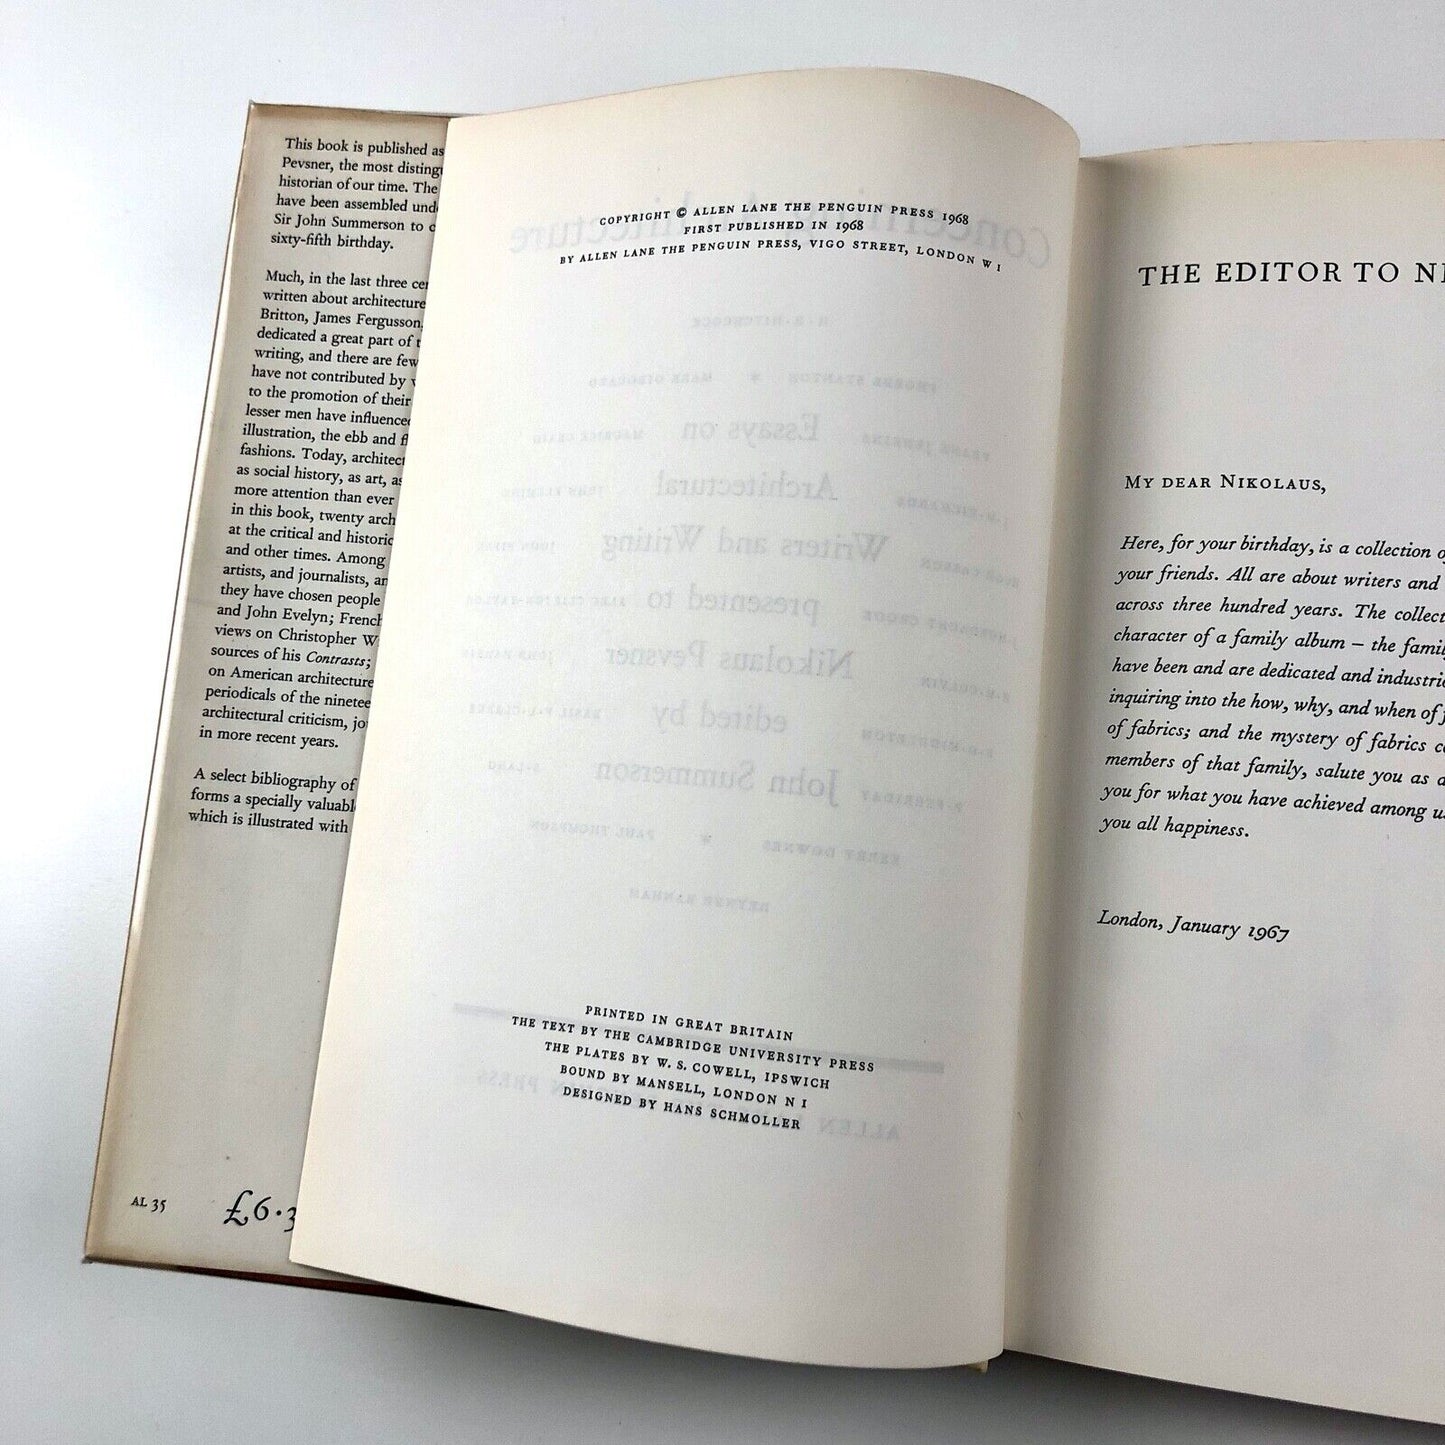 This book is published as
Pevsner, the most
historian of our time. The
have been assembled
Sir John Summerson to
sixty-fifth birthday.
Much, in the last three
written about architecture
Britton, James Fergusson,
dedicated a great part of
writing, and there are few
have not contributed by
to the promotion of their
lesser men have influenced
illustration, the ebb and
fashions. Today,
as social history, as art, as
more attention than ever
in this book, twenty
at the critical and
and other times. Among
artists, and journalists,
they have chosen people
and John Evelyn; French
views on Christopher
sources of his Contrasts;
on American architecture
periodicals of the
architectural criticism,
in more recent years.
A select bibliography of
forms a specially
which is illustrated with
AL 35
£6·3
COPYRIGHT © ALLEN LANE THE PENGUIN PRESS 1968
FIRST PUBLISHED IN 1968
BY ALLEN LANE THE PENGUIN PRESS, VIGO STREET, LONDON W I
Concerning Architecture
H.-R. HITCHCOCK
PHOEBE STANTON * MARK GIROUARD
Essays on
FRANK JENKINS MAURICE CRAIG
Architectural
JOHN FLEMING
Writers and Writing
HUGH CASSON
presented to
J. MORDAUNT CROOK ALEC CLIFTON-TAYLOR
Nikolaus Pevsner
H.M.COLVIN JOHN HARRIS
edited by
R.D.MIDDLETON BASIL F.L.CLARKE
John Summerson
P.FERRIDAY S.LANG
KERRY DOWNES * PAUL THOMPSON
REYNER BANHAM
ALLEN PRESS
PRINTED IN GREAT BRITAIN
THE TEXT BY THE CAMBRIDGE UNIVERSITY PRESS
THE PLATES BY W. S. COWELL, IPSWICH
BOUND BY MANSELL, LONDON N I
DESIGNED BY HANS SCHMOLLER
THE EDITOR TO
MY DEAR NIKOLAUS,
Here, for your birthday, is a collection
your friends. All are about writers and
across three hundred years. The
character of a family album – the
have been and are dedicated and
inquiring into the how, why, and when of
of fabrics; and the mystery of fabrics
members of that family, salute you as
you for what you have achieved among
you all happiness.
London, January 1967